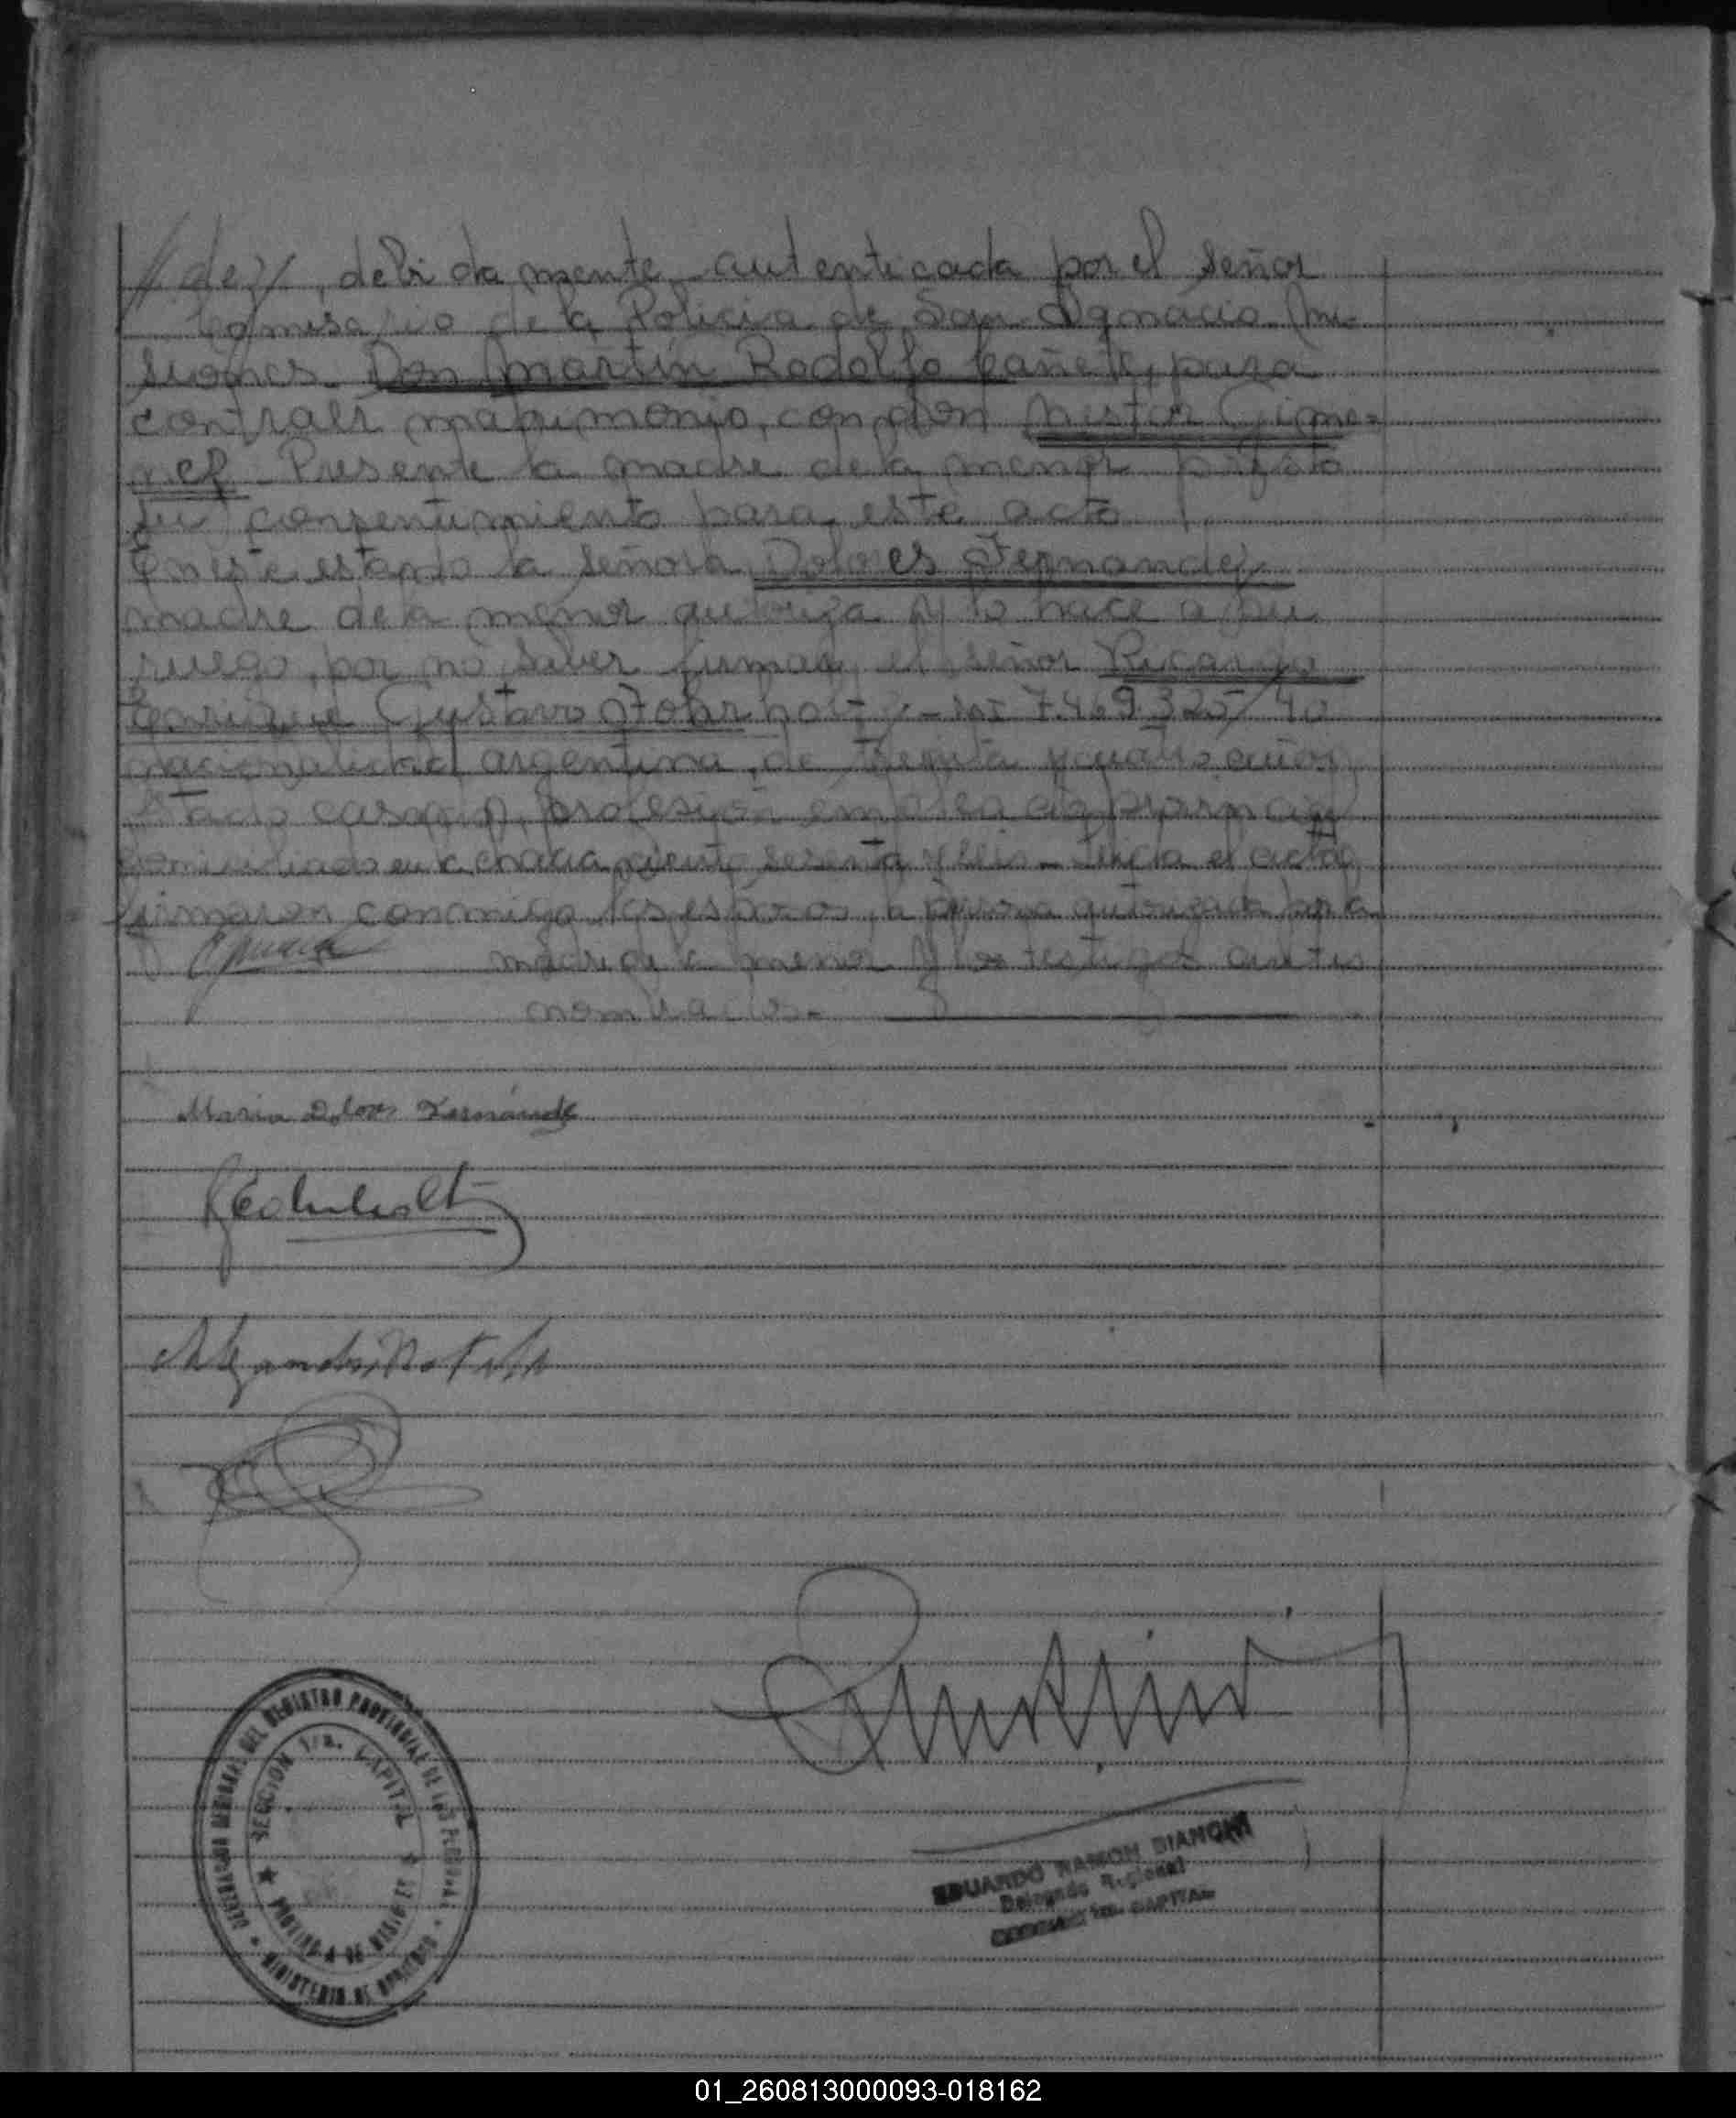 //dez//, debidamente autenticada por el señor
Comisario de la Policia de San Ignacio (mi-
siones. Don Martín Rodolfo Cañete, para
contraer matrimonio, con don Nestor Gime=
nez. Presente la madre de la menor presta
su consentimiento para este acto
En este estado la señora Dolores Fernandez
madre de la menor autoriza y lo hace a su
ruego, por no saber firmar, el señor Ricardo
Enrique Gustavo 7.469.325/40
nacionalidad argentina, de treinta y cuatro años
estado casado, profesion
domiciliado en chacra ciento sesenta y seis - Leida el acta
firmaron conmigo los esposos, la persona autorizada por la
madre de la menor y los testigos antes
nombrados.-
Maria Dolores Fernández
DELEGACION REGIONAL DEL REGISTRO PROVINCIAL DE LAS PERSONAS
SECCION 1ra. CAPITAL
PROVINCIA DE MISIONES
MINISTERIO DE GOBIERNO
EDUARDO RAMON BIANCHI
Delegado Regional
SECCION 1ra. CAPITAL
01_260813000093-018162